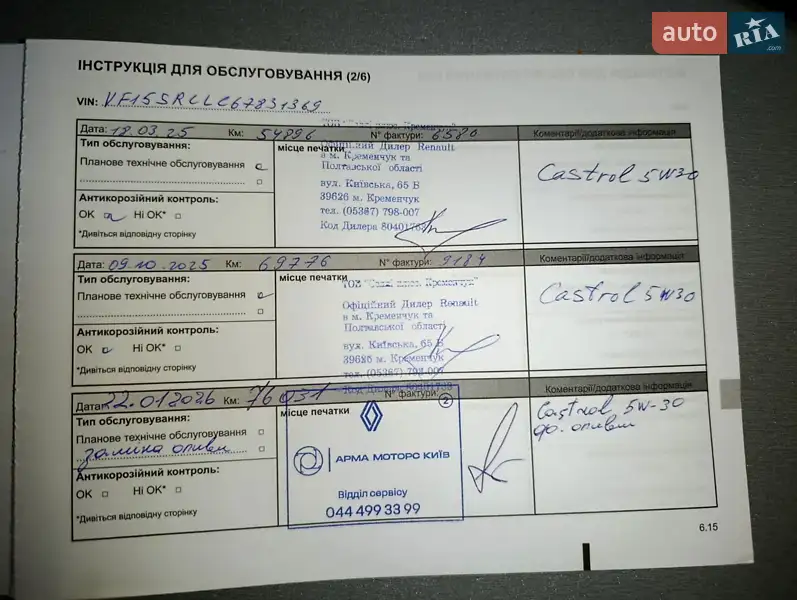 auto RIA .com
ІНСТРУКЦІЯ ДЛЯ ОБСЛУГОВУВАННЯ (2/6)
VIN: VF15SRCLC67831369
Дата: 18.03.25 Км: 54896 N° фактури: 6580 Коментарії/додаткова інформація
Тип обслуговування:
Планове технічне обслуговування
Антикорозійний контроль:
OK Hi OK*
*Дивіться відповідну сторінку
місце печатки
Офіційний Дилер Renault
в м. Кременчук та
Полтавської області
вул. Київська, 65 В
39626 м. Кременчук
тел. (05367) 798-007
Код Дилера
Castrol 5W30
Дата: 09.10.2025 Км: 69776 N° фактури: 9184 Коментарії/додаткова інформація
Тип обслуговування:
Планове технічне обслуговування
Антикорозійний контроль:
OK Hi OK*
*Дивіться відповідну сторінку
місце печатки
ТОВ
Офіційний Дилер Renault
в м. Кременчук та
Полтавської області
вул. Київська, 65 В
39626 м. Кременчук
тел. (05367) 798-007
Код Дилера
Castrol 5W30
Дата: 22.01.2026 Км: 76051 N° фактури: Коментарії/додаткова інформація
Тип обслуговування:
Планове технічне обслуговування
заміна оливи
Антикорозійний контроль:
OK Hi OK*
*Дивіться відповідну сторінку
місце печатки
2
АРМА МОТОРС КИЇВ
Відділ сервісу
044 499 33 99
Castrol 5W-30
ф. оливи
6.15